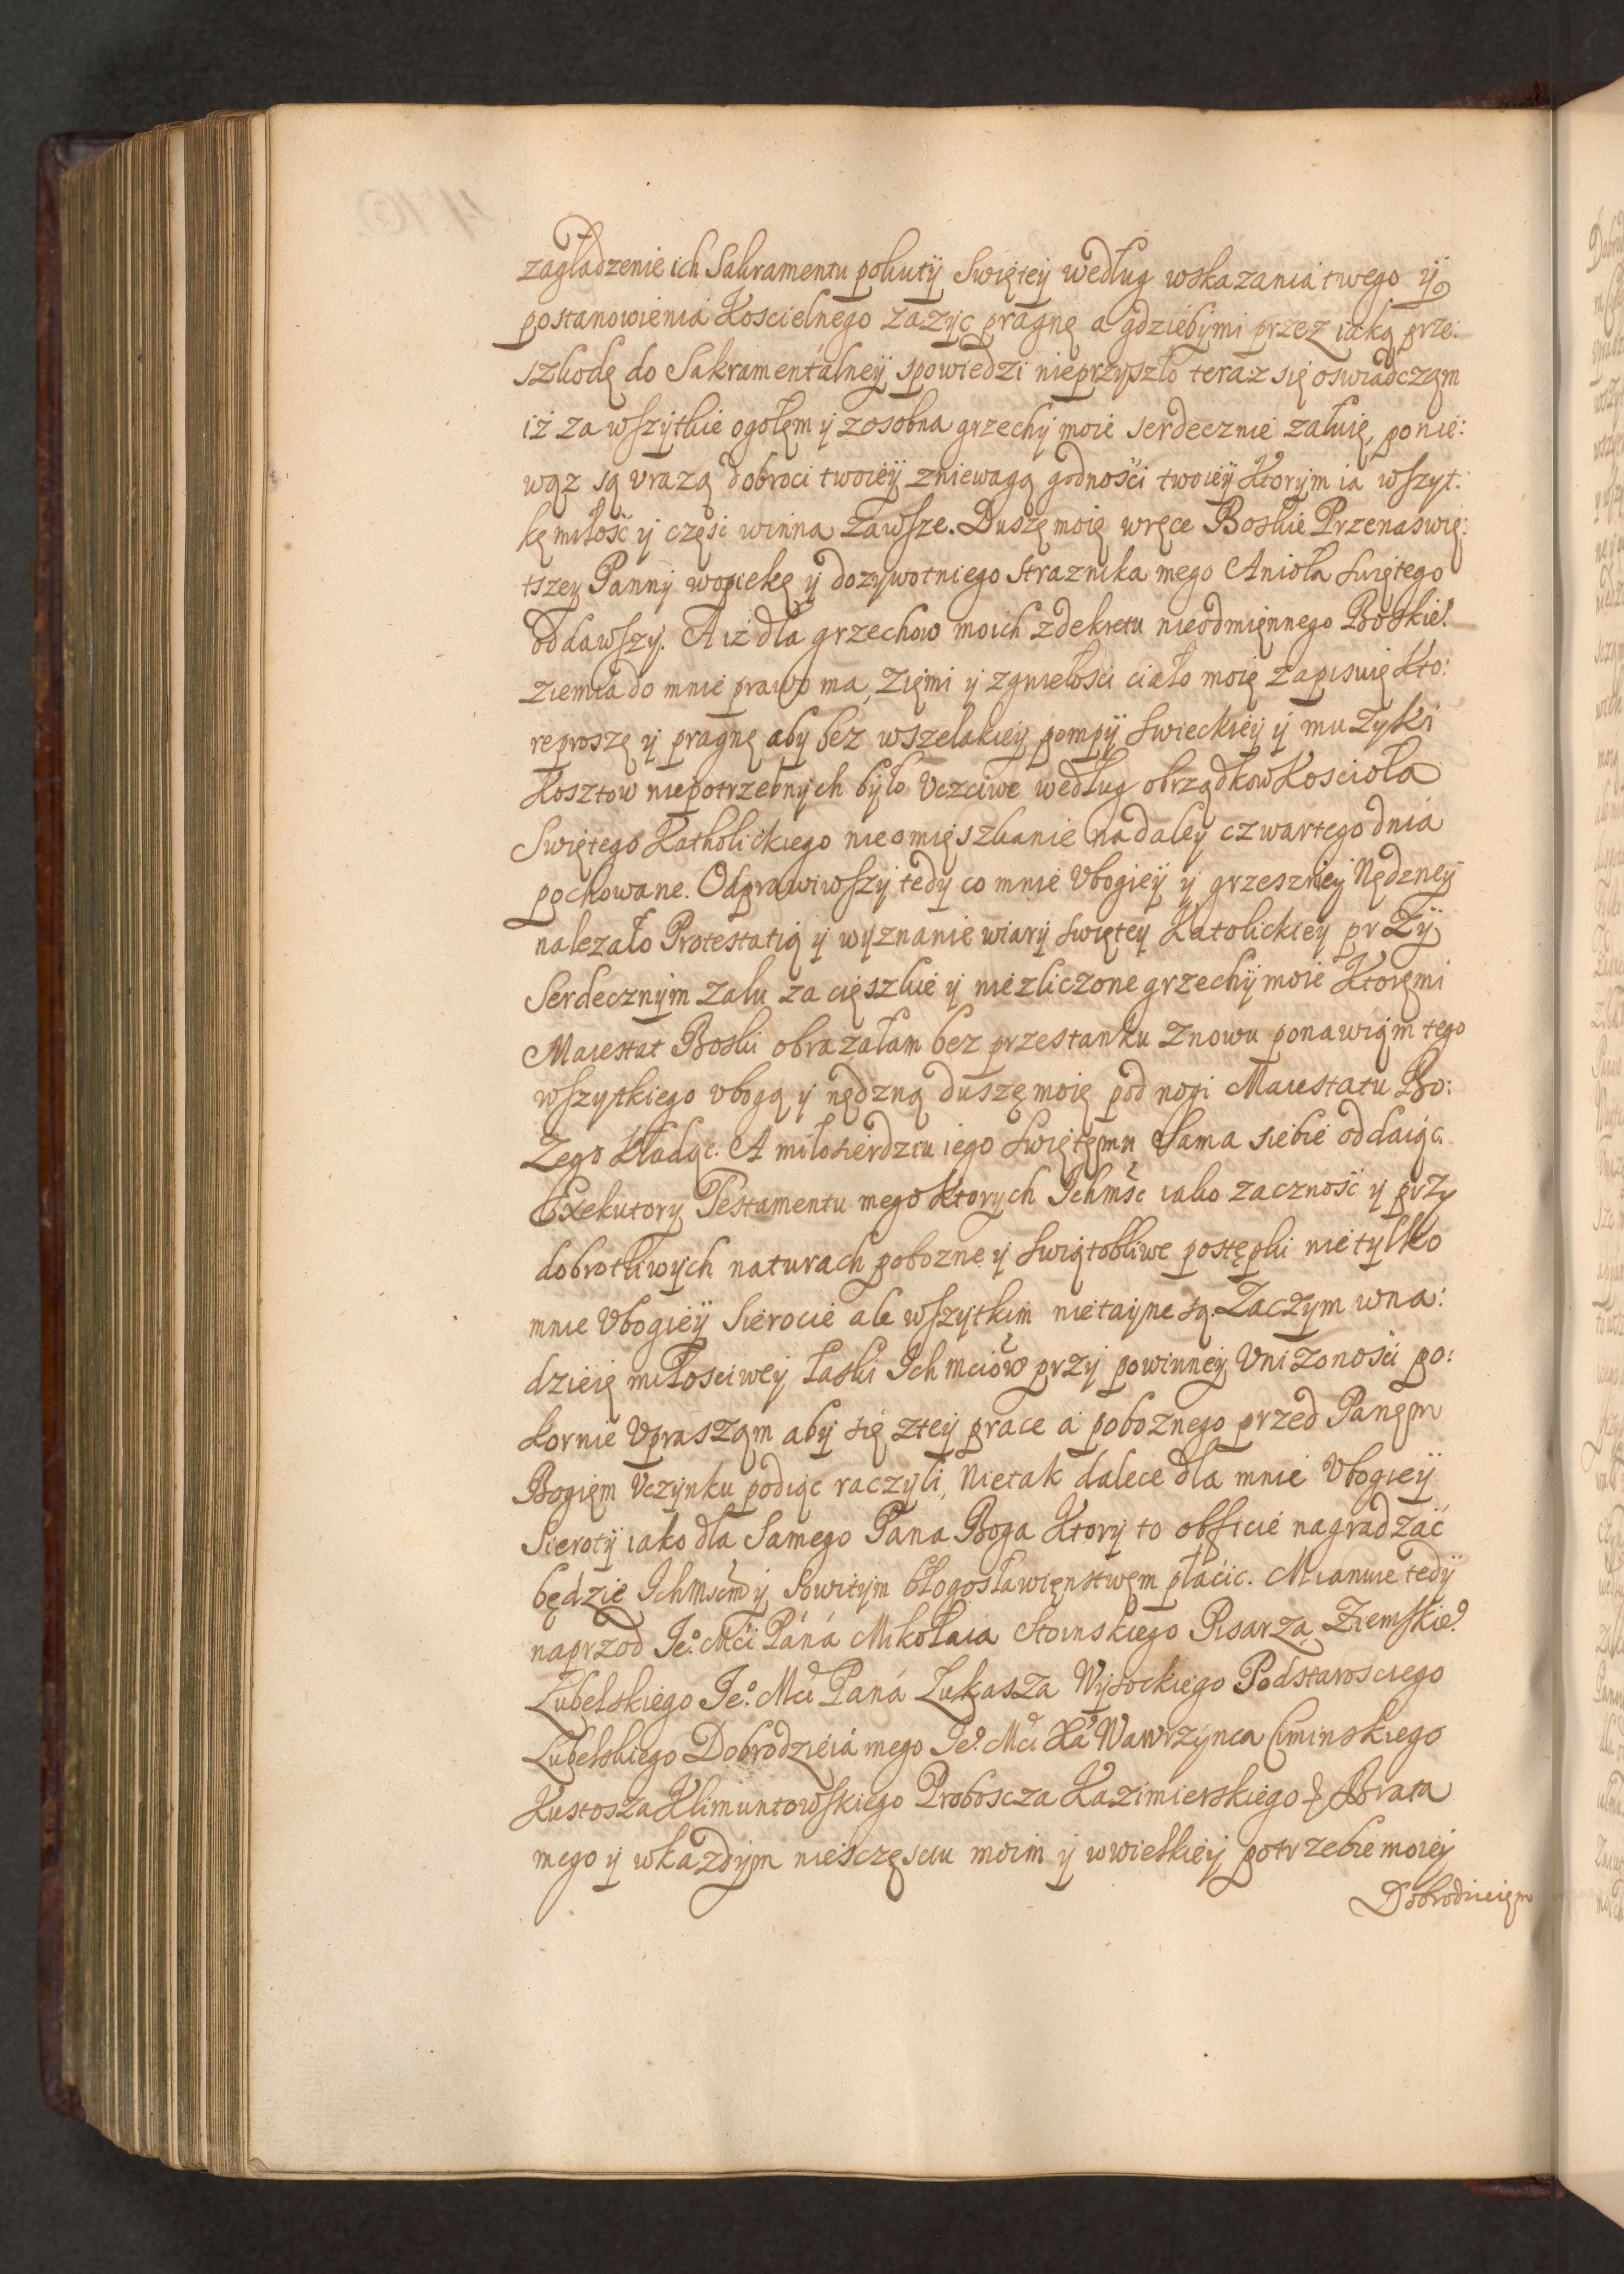 zagładzenie ich Sakramentu pokutÿ Swiętey według wskazania twego ÿ
postanowienia Koscielnego zazyc pragnę a gdziebymi przez iaką prze:
szkodę do Sakramentalneÿ spowiedzi nieprzyszło teraz się oswiadcząm
iż za wszytkie ogołem ÿ zosobna grzechÿ moie serdecznie załuię, ponie:
wąz są vrazą dobroci twoieÿ zniewagą godności twoieÿ Ktorÿm ia wszyt:
kę miłość ÿ częsc winna zawsze. Duszę moię wręce Boskie Przenaswię:
tszey Pannÿ wopiekę ÿ dozywotniego straznika mego Anioła swiętego
oddawszÿ. A iż dla grzechow moich zdekretu nieodmięnnego Boskieº
ziemia do mnie prawo ma, Zięmi ÿ zgniełosci ciało moię zapisuię Kto:
re proszę ÿ pragnę aby bez wszelakieÿ pompÿ swieckieÿ ÿ muzyki
Kosztow niepotrzebnÿch bÿło Uczciwe według obrządkow Koscioła
Swiętego Katholickiego nieomięszkanie nadaleÿ czwartego dnia
pochowane. Odprawiwszÿ tedÿ co mnie Vbogieÿ ÿ grzeszneÿ Nędzneÿ
nalezało Protestatią ÿ wÿznanie wiarÿ swiętey Katolickieÿ przÿ
Serdecznÿm zalu za cięszkie ÿ niezliczone grzechÿ moie Ktoręmi
Maiestat Boski obrazałam bez przestanku znowu ponawiąm tego
wszytkiego vbogą ÿ nędzną duszę moię pod nogi Maiestatu Bo:
zego Kładąc. A miłosierdziu iego swiętęmu Sama siebie oddaiąc.
Exekutory Testamentu mego Ktorych Ichmśc iako zacznośc ÿ przy
dobrotliwÿch naturach pobozne ÿ swiątobliwe postępki nietylko
mnie Vbogieÿ Sierocie ale wszÿtkim nietaÿne są. Zaczym wna:
dzieię miłosciweÿ łaski Ichmciów przÿ powinneÿ Unizonośći po:
kornie Uprasząm abÿ się zteÿ prace a poboznego przed Panęm
Bogięm Uczÿnku podiąc raczÿli, Nietak dalece dla mnie Vbogieÿ
Sierotÿ iako dla Samego Pana Boga Ktorÿ to obficie nagradzać
będzie Ichmscm ÿ Sowitÿm błogosławięnstwęm płacic. Mianuie tedÿ
naprzod Ieº Mći Páná Mikołaia Stoinskiego Pisarza Ziemskieº
Lubelskiego Ieº Mci Paná Łukasza Wÿsockiego Podstarosciego
Lubelskiego Dobrodzieia mego Ieº Mci Xa Wawrzÿnca Ciminskiego
Kustosza Klimuntowskiego Proboscza Kazimierskiego & Brata
mego ÿ wkazdÿm niesczęsciu moim ÿ wwielkieÿ potrzebie moieÿ
Dobrodzieięm